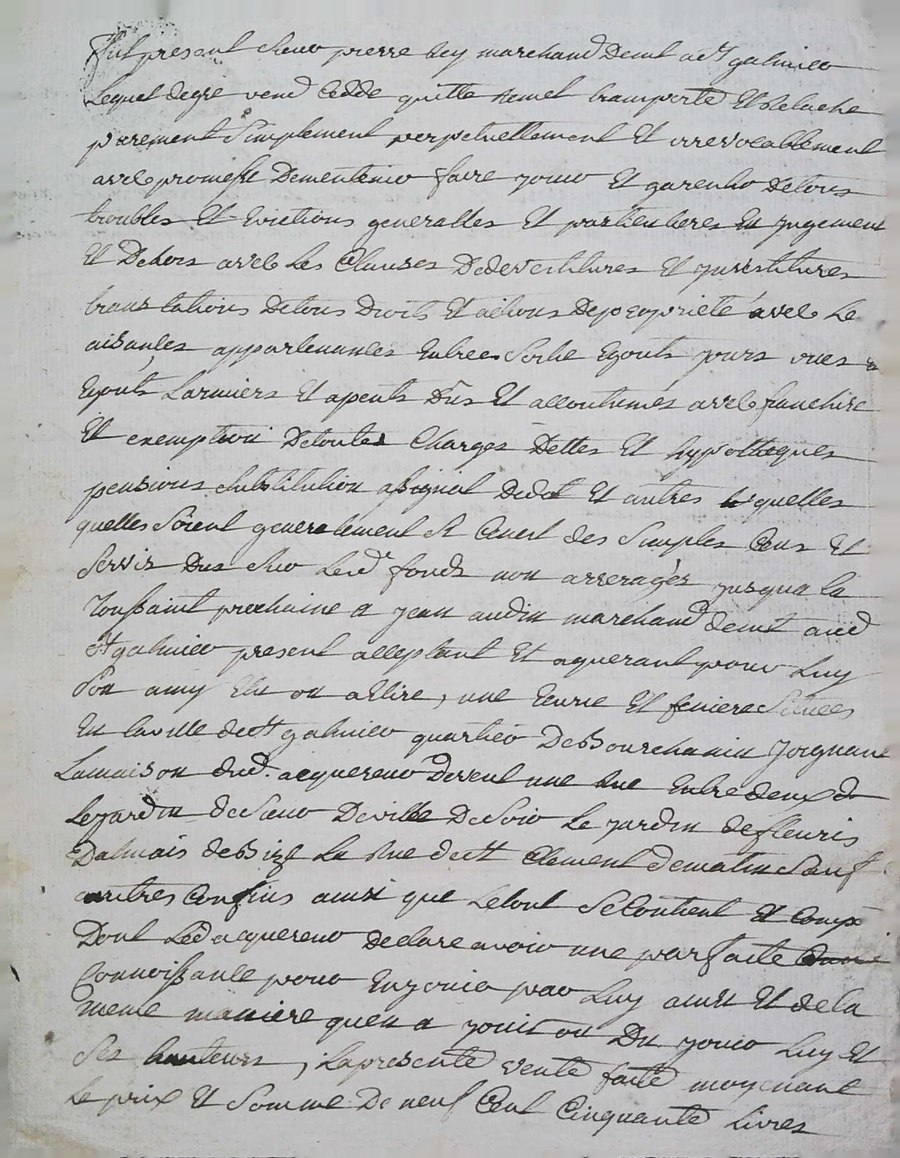 fut present sieur pierre Rey marchand demt a st galmier
Lequel degre vend Cedde quitte remet transporte Et relache
purement simplement perpetuellement Et irrevocablement
avec promesse de maintenir faire jouir Et garentir de tous
troubles Et Evictions generalles Et particulieres En jugement
Et Dehors avec Les Clauses Dedevestitures Et investitures
translations Detous Droits Et actions Depropriete avec Le
aisances appartenances Entrees Sortie Egouts jours vues &
Egouts Larmiers Et apents Dus Et accoutumés avec franchise
Et exemption Detoutes Charges Dettes Et hypotheques
pensions substitution assignat Dedot Et autres quelles
quelles Soient generalement Si Cenest des Simples Cens Et
Servis Dus sur Led. fonds non arreragés jusqua la
Toussaint prochaine a jean audin marchand demt aud
St galmier present acceptant Et aquerant pour Luy
Son amy Elu ou a Elire, une Ecurie Et feniere Situées
En laville de St galmier quartier De Bourchanin joignant
Lamaison dud. acquereur Devent une Rue Entre deux &
Lejardin de Sieur Deville De Soir Le jardin de fleuris
Dalmais de Bize La Rue de St Clement de matin Sauf
autres Confins ainsi que Letout Se Contient Et Comp
Dont Led acquereur declare avoir une parfaite
Connoissance pour Enjouir par Luy ainsi Et de la
meme maniere quen a jouit ou Du jouir Luy Et
Ses hauteurs, Lapresente vente faite moyenant
Le prix Et Somme De neuf Cent Cinquante Livres